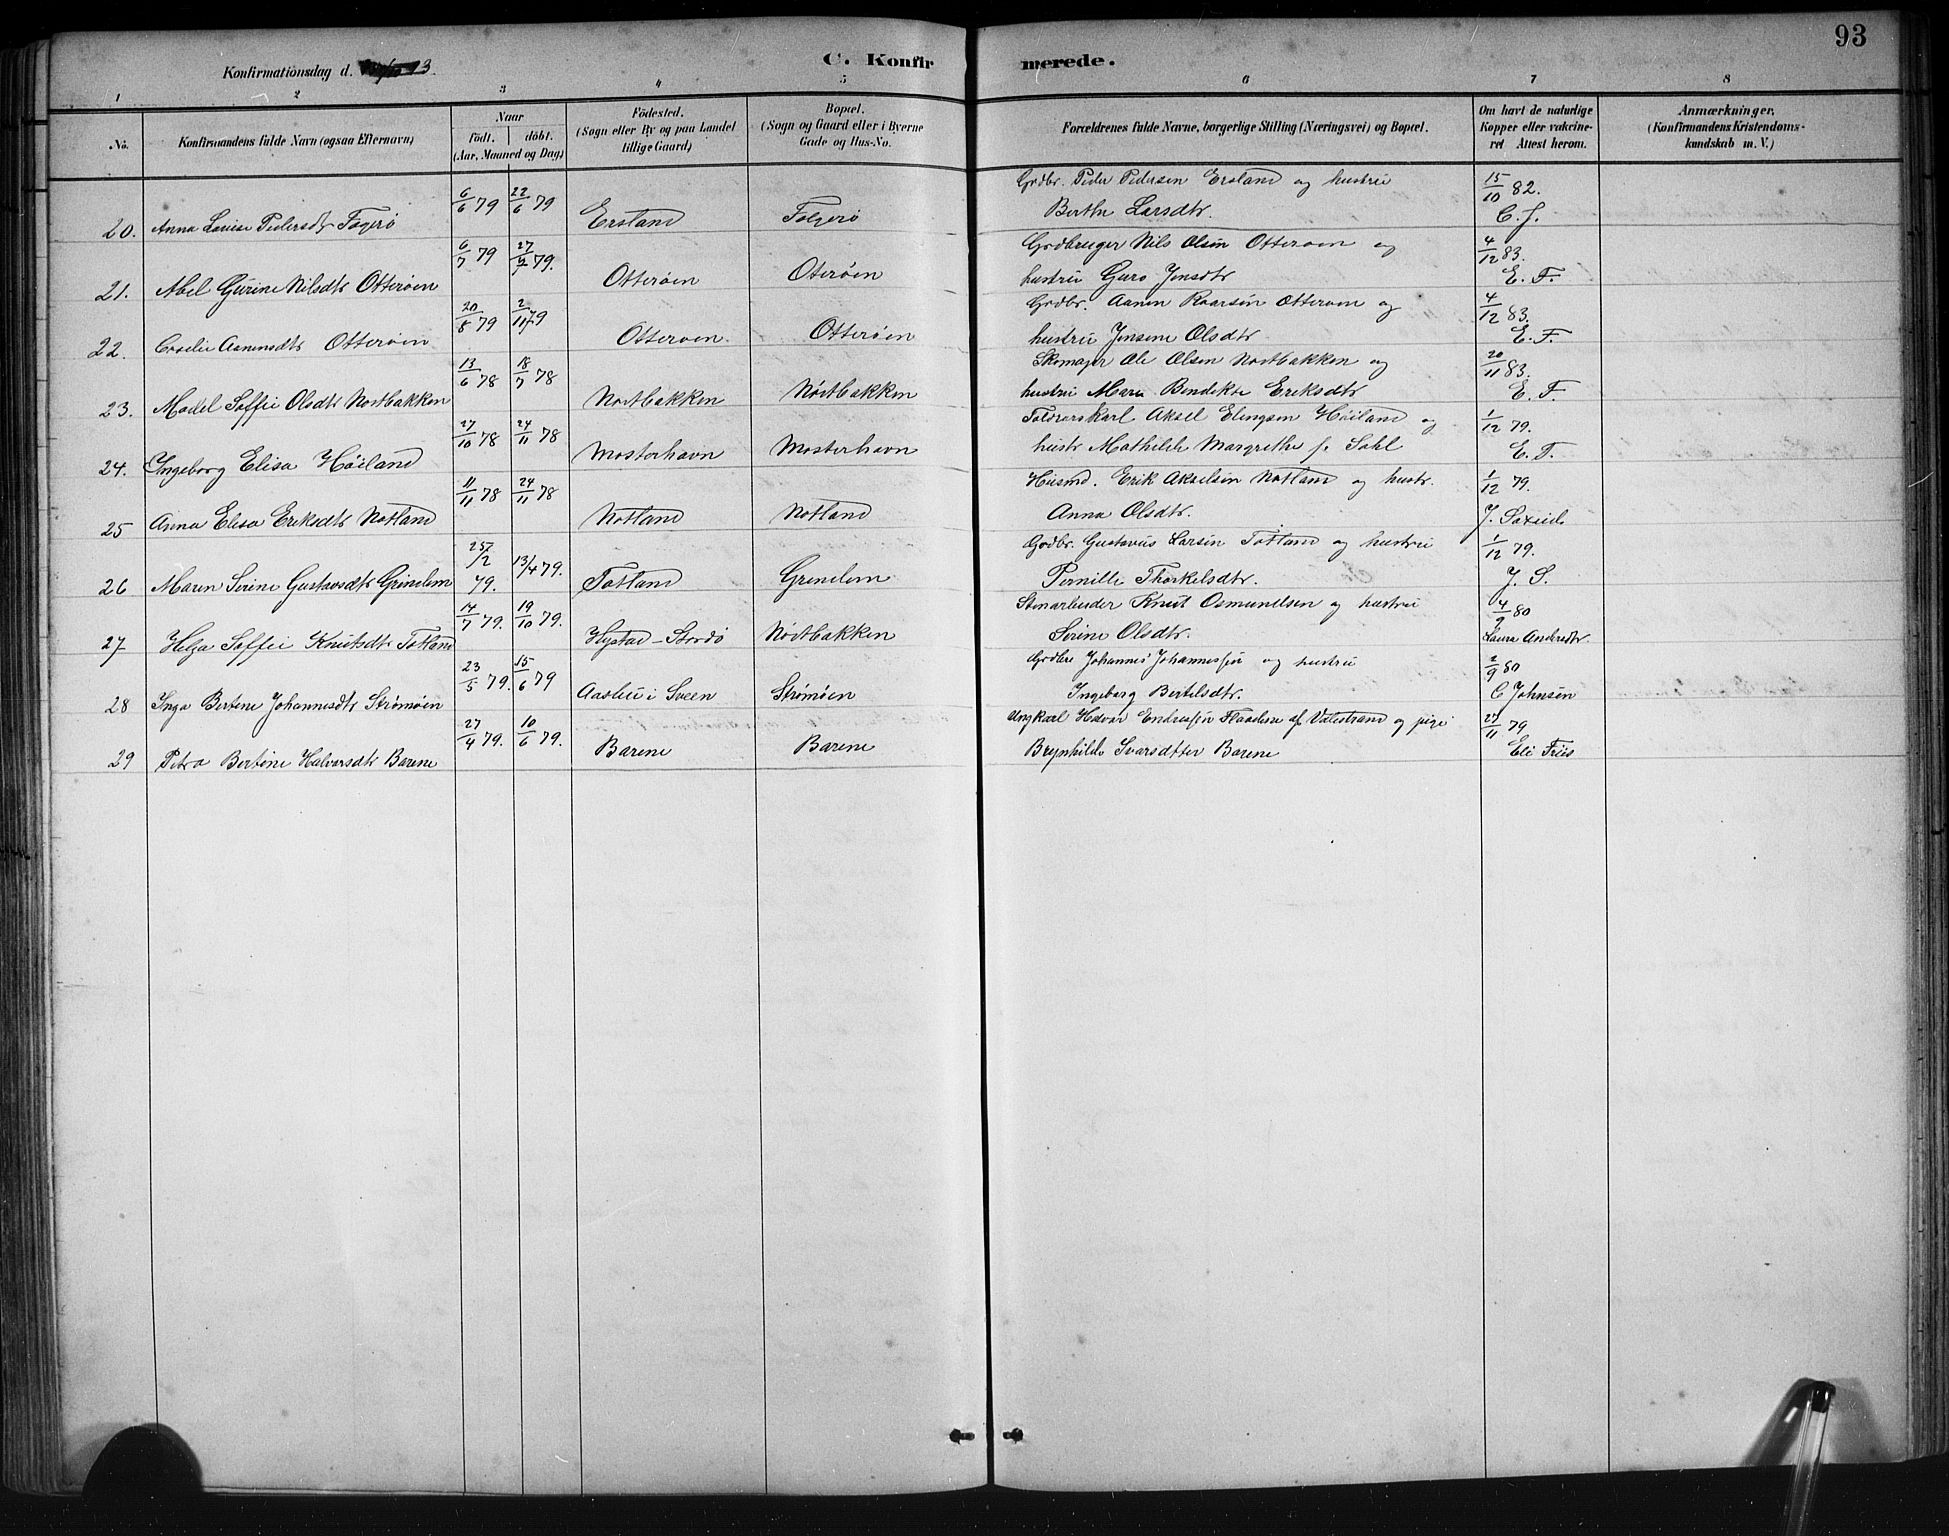 93
Konfirmationsdag d. 13.
C. Konfirmerede.
1 2 3 4 5 6 7 8
No.
Konfirmandens fulde Navn (ogsaa Efternavn)
Naar
födt. döbt.
(Aar, Maaned og Dag)
Födested.
(Sogn eller By og paa Landet
tillige Gaard)
Bopæl.
(Sogn og Gaard eller i Byerne
Gade og Hus-No.
Forældrenes fulde Navne, borgerlige Stilling (Næringsvei) og Bopæl.
Om havt de naturlige
Kopper eller vakcine-
ret Attest herom.
Anmærkninger,
(Konfirmandens Kristendoms-
kundskab m. V.)
20. Anna Lovise Pedersdtr Fogerø 6/6 79 22/6 79 Ersland Folgerø Grdbr. Peder Pedersen Ersland og hustru 15/10 82.
Berthe Larsdtr. C. J.
21. Abel Gurine Nilsdtr Otterøen 6/7 79 27/7 79. Otterøen Oterøen Grdbruger Nils Olsen Otterøen og 4/12 83.
hustru Guro Jensdtr E. F.
22. Aanensdtr Otterøen 20/8 79 2/11 79 Otterøen Otterøen Grdbr. Aanen Roarsen Otterøen og 4/12 83.
hustru Jensine Olsdtr. E. F.
23. Madel Soffie Olsdtr Nostbakken 13/6 78 18/7 78 Nostbakken Nöstbakken Skomager Ole Olsen Nostbakken og 20/11 83.
hustru Maria Bendikte Eriksdtr E. F.
24. Ingeborg Elisa Höiland 27/10 78 24/11 78 Mosterhavn Mosterhavn Toldrorskarl Aksel Elingsen Höiland og 1/12 79.
hustr Mathilde Margrethe f. Sahl E. F.
25 Anna Elisa Eriksdtr Notland 11/11 78 24/11 78 Notland Notland Husmd. Erik Akselsen Notland og hustr. 1/12 79.
Anna Olsdtr. J.
26 Maren Serine Gustavsdtr Grindem 25/2 79. 13/4 79. Totland Grindem Grdbr. Gustavus Larsen Totland og hustru 1/12 79.
Pernille Thorkelsdtr. J. S.
27 Helga Soffie Knutsdtr Totland 14/7 79. 19/10 79. Hystad - Stordø Nöstbakken Stenarbeider Knut Osmundsen og hustru 4/9 80
Serine Olsdtr. Laura Andersdtr
28 Inga Bertine Johannesdtr Strømøen 23/5 79. 15/6 79 i Sveen Strømøen Johannes Johannessen og hustru 2/9 80
Ingeborg Bertelsdtr. C Johnsen
29 Petra Bertine Halvorsdtr Barene 27/4 79. 10/6 79. Barene Barene Ungkarl Halvor Endresen Flaadene af Valestrand og pige 27/11 79
Brynhilde Ivarsdatter Barene Eli Friis